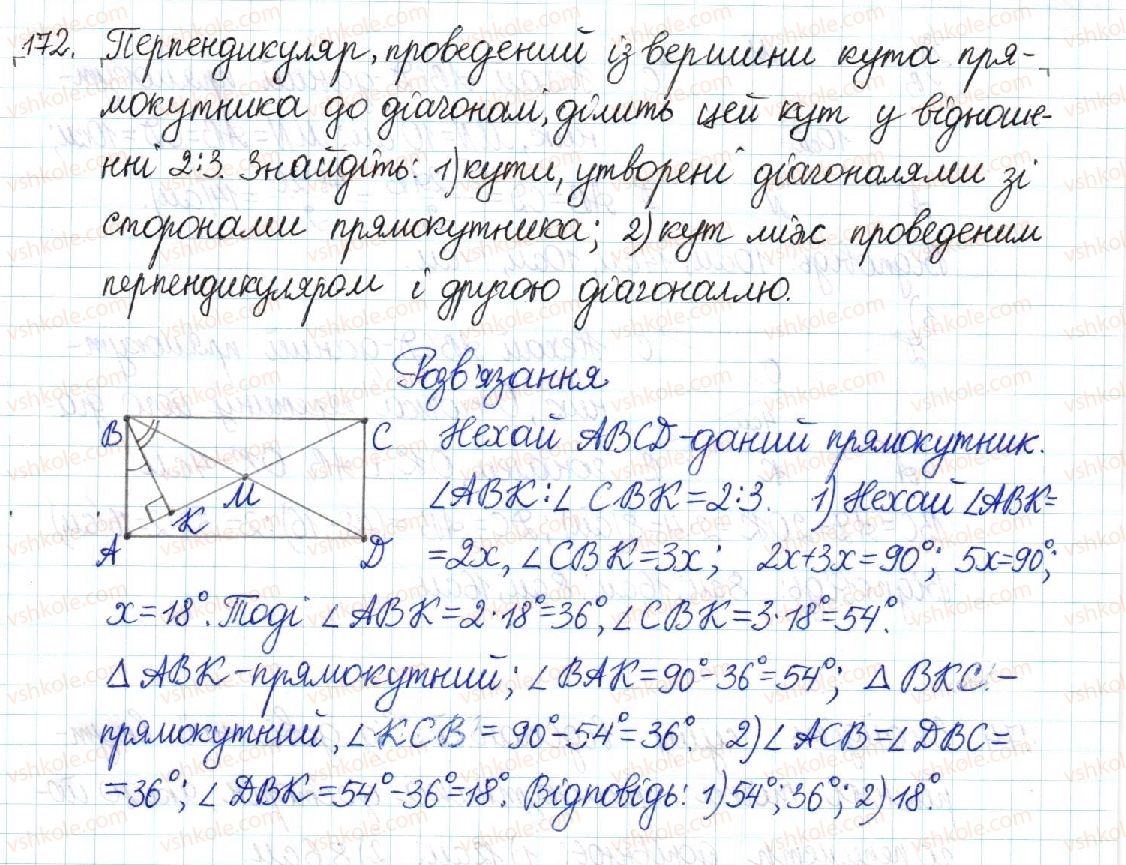 172. Перпендикуляр, проведений із вершини кута пря-
мокутника до діагоналі, ділить цей кут у відноше-
нні 2:3. Знайдіть: 1) кути, утворені діагоналями зі
сторонами прямокутника; 2) кут між проведеним
перпендикуляром і другою діагоналлю.
Розв'язання
B
C
M
K
A
D
Нехай ABCD - даний прямокутник.
∠ABK : ∠CBK = 2:3. 1) Нехай ∠ABK =
= 2x, ∠CBK = 3x; 2x+3x=90°; 5x=90°;
x=18°. Тоді ∠ABK = 2·18°=36°, ∠CBK=3·18°=54°.
△ABK - прямокутний; ∠BAK=90°-36°=54°; △BKC -
прямокутний, ∠KCB = 90°-54°=36°. 2) ∠ACB=∠DBC=
=36°; ∠DBK=54°-36°=18°. Відповідь: 1) 54°; 36°; 2) 18°.